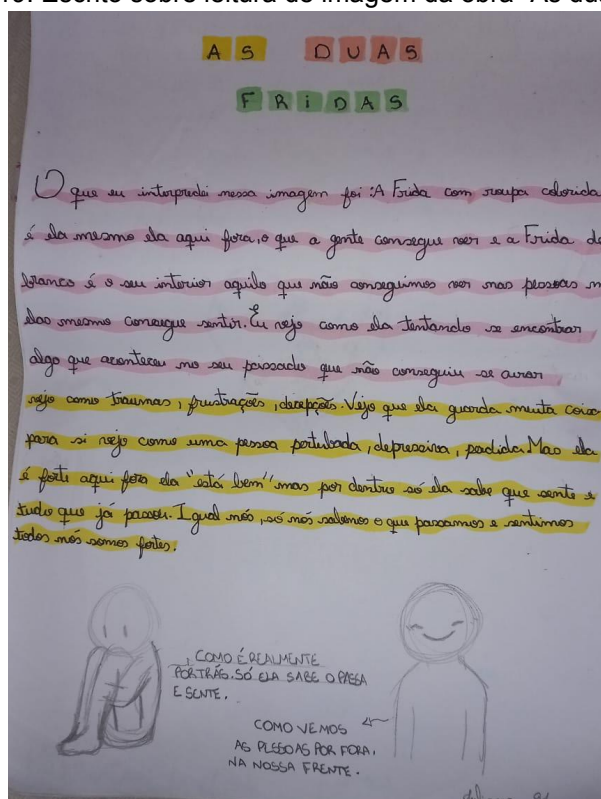 AS DUAS
FRIDAS
O que eu interpretei nessa imagem foi: A Frida com roupa colorida
é ela mesmo ela aqui fora, o que a gente consegue ver e a Frida de
branco é o seu interior aquilo que não conseguimos ver nas pessoas
elas mesmo consegue sentir. Eu vejo como ela tentando se encontrar
algo que aconteceu no seu passado que não conseguiu se curar
vejo como traumas, frustrações, decepções. Vejo que ela guarda muita coisa
para si vejo como uma pessoa pertubada, depressiva, perdida. Mas ela
é forte aqui fora ela "está bem" mas por dentro só ela sabe que sente e
tudo que já passou. Igual nós, só nós sabemos o que passamos e sentimos
todos nós somos fortes.
COMO É REALMENTE
POR TRÁS. SÓ ELA SABE O PASSA
E SENTE.
COMO VEMOS
AS PESSOAS POR FORA,
NA NOSSA FRENTE.